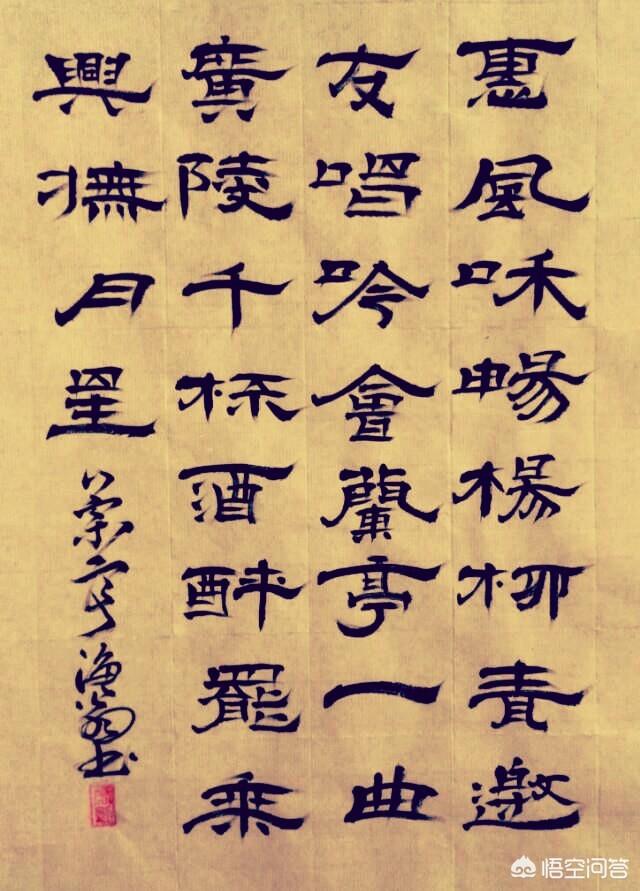 惠風咊暢楊柳青邀
友唱吟會蘭亭一曲
廣陵千杯酒醉罷乘
興撫月星
渔翁书
悟空问答